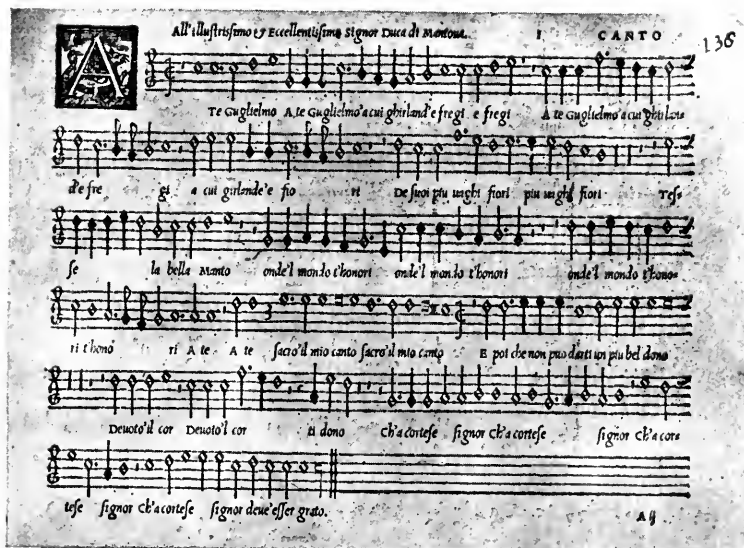 All'illustrissimo & Eccellentissimo Signor Duca di Mantoua. I CANTO
136
A
Te Guglielmo A te Guglielmo'a cui ghirland'e fregi e fregi A te Guglielmo'a cui ghirlan-
d'e fre gi a cui girlande'e fio ri De suoi piu uaghi fiori piu uaghi fiori Tess-
se la bella Manto onde'l mondo t'honori onde'l mondo t'honori onde'l mondo t'hono-
ri t'hono ri A te A te sacro'il mio canto sacro'il mio canto E poi che non puo darti un piu bel dono
Deuoto'il cor Deuoto'l cor ti dono Ch'a cortese signor Ch'a cortese signor Ch'a cort-
tese signor Ch'a cortese signor deue'esser grato.
A ij